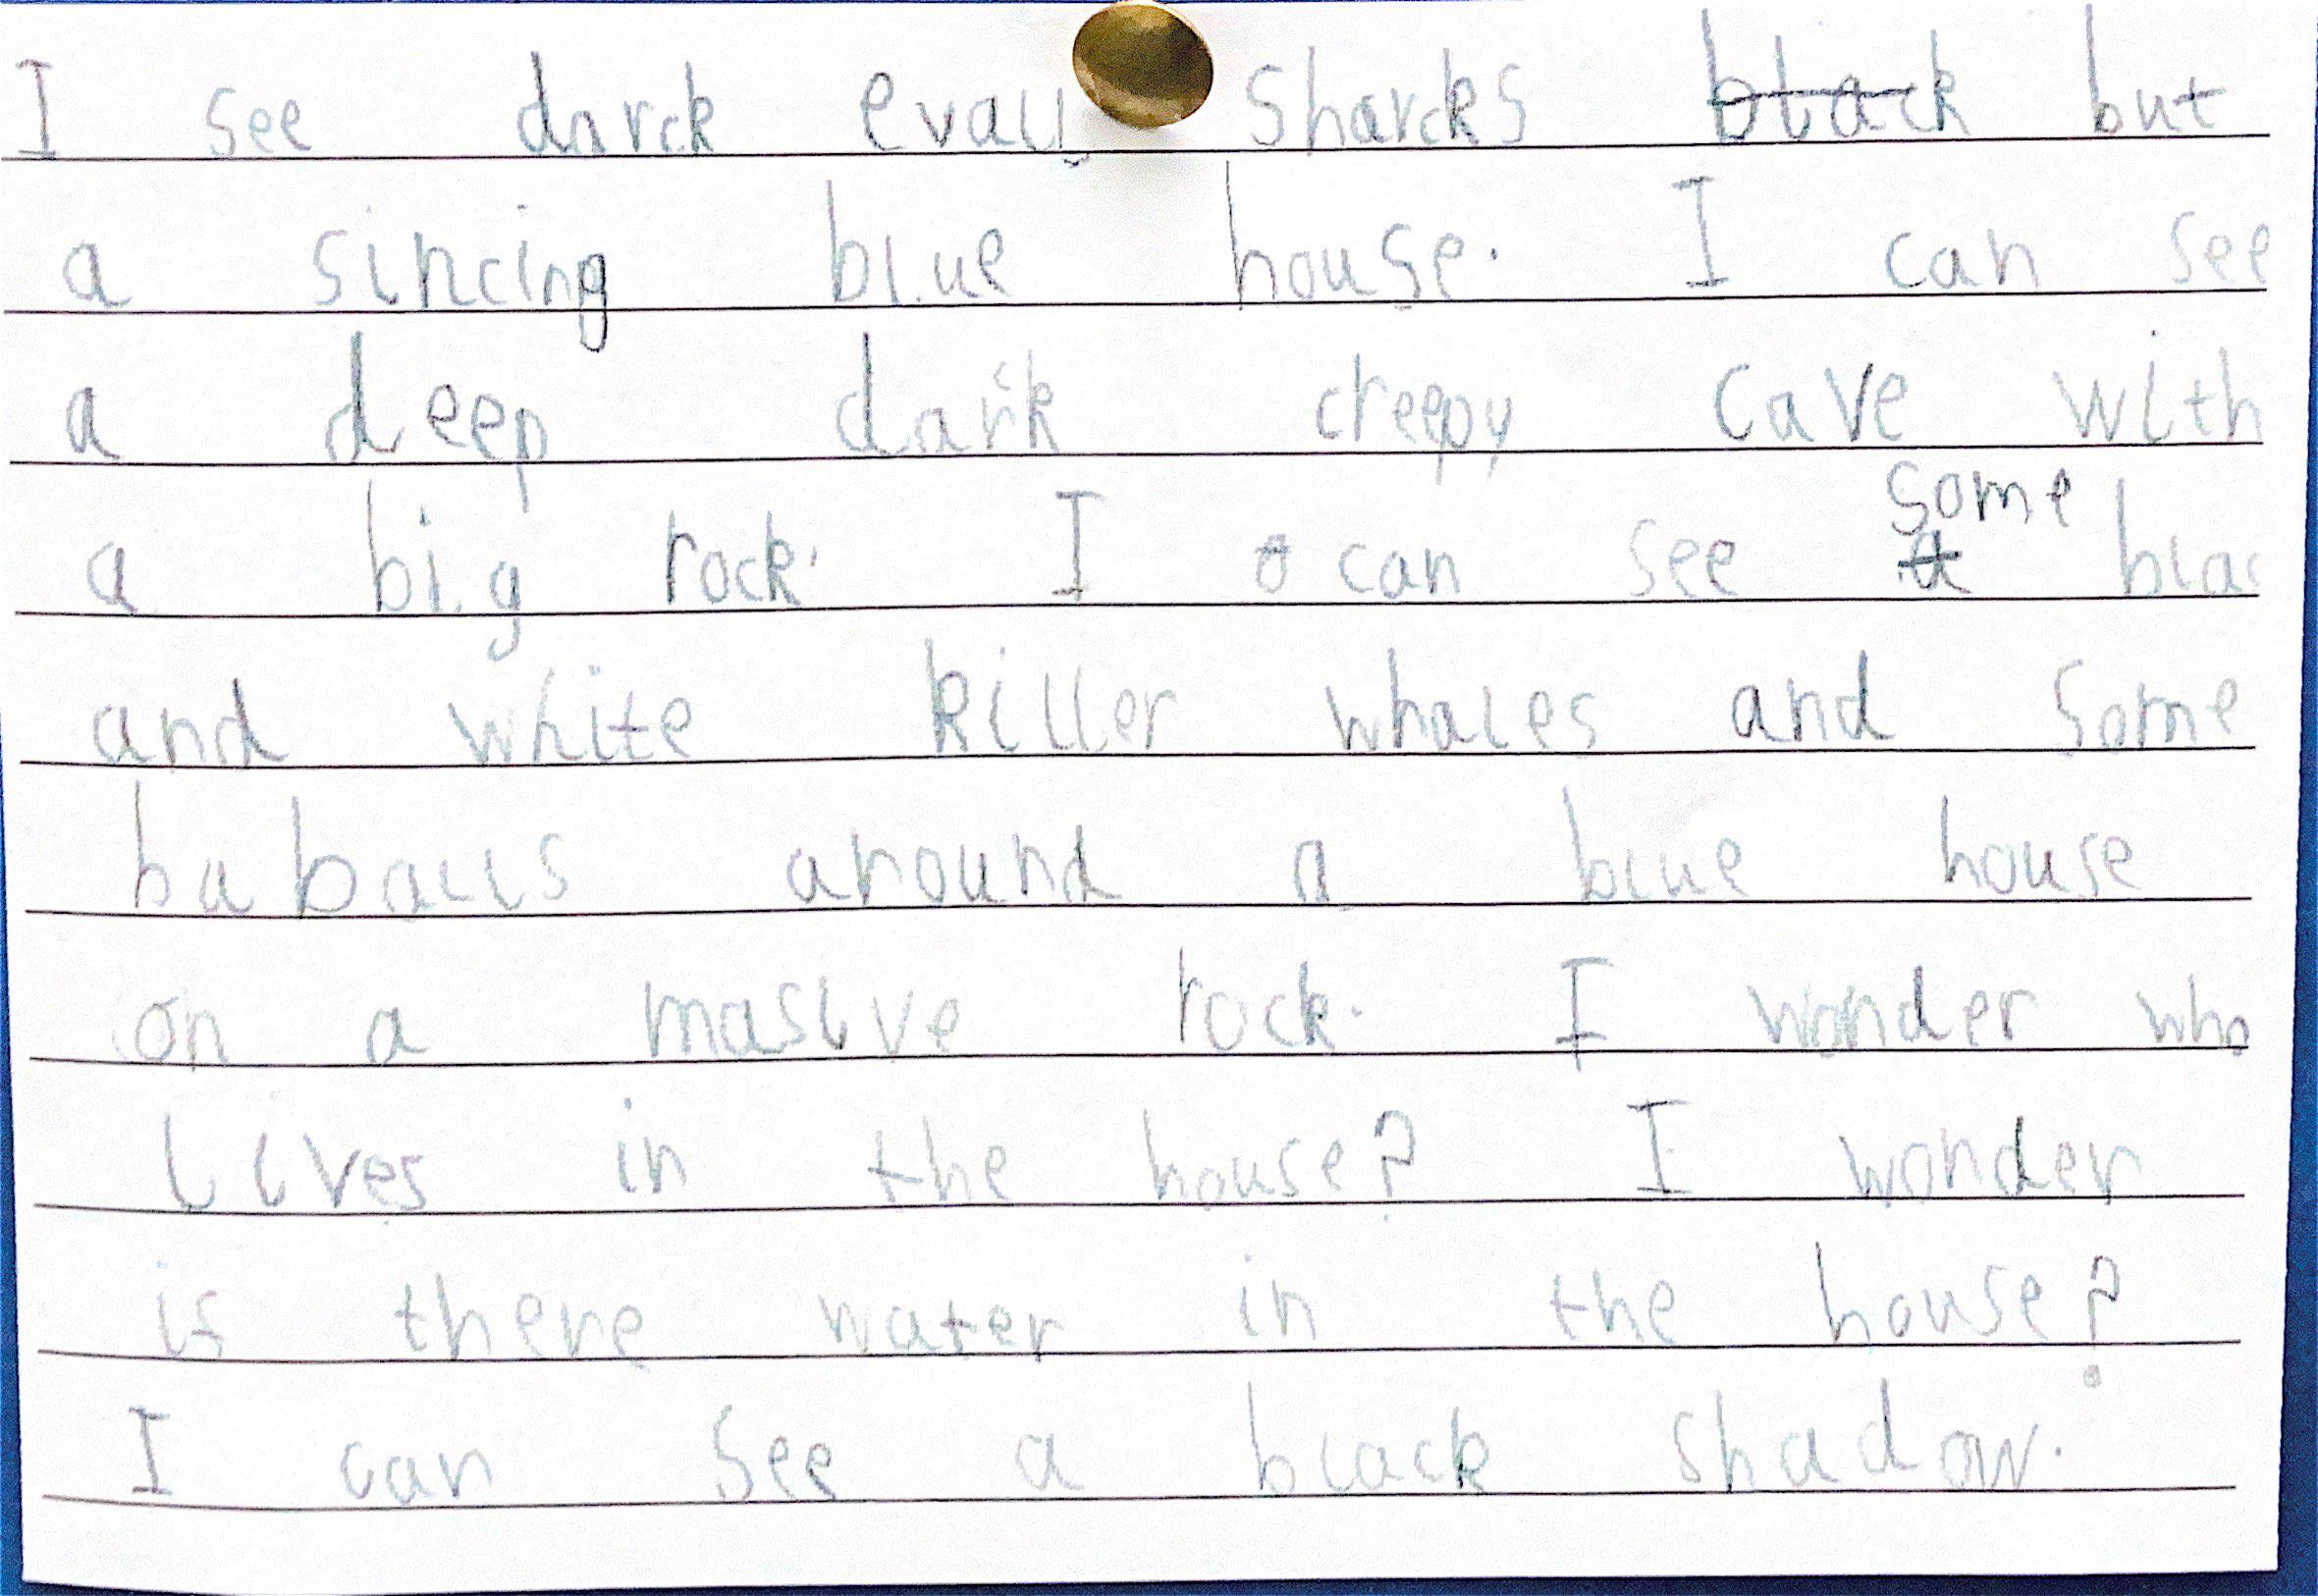 I see darck evall sharcks black but
a sincing blue house. I can see
a deep dark creepy cave with
a big rock. I can see some
and white killer whales and some
buballs around a blue house
on a masive rock. I wonder who
lives in the house? I wonder
is there water in the house?
I can see a black shadow.